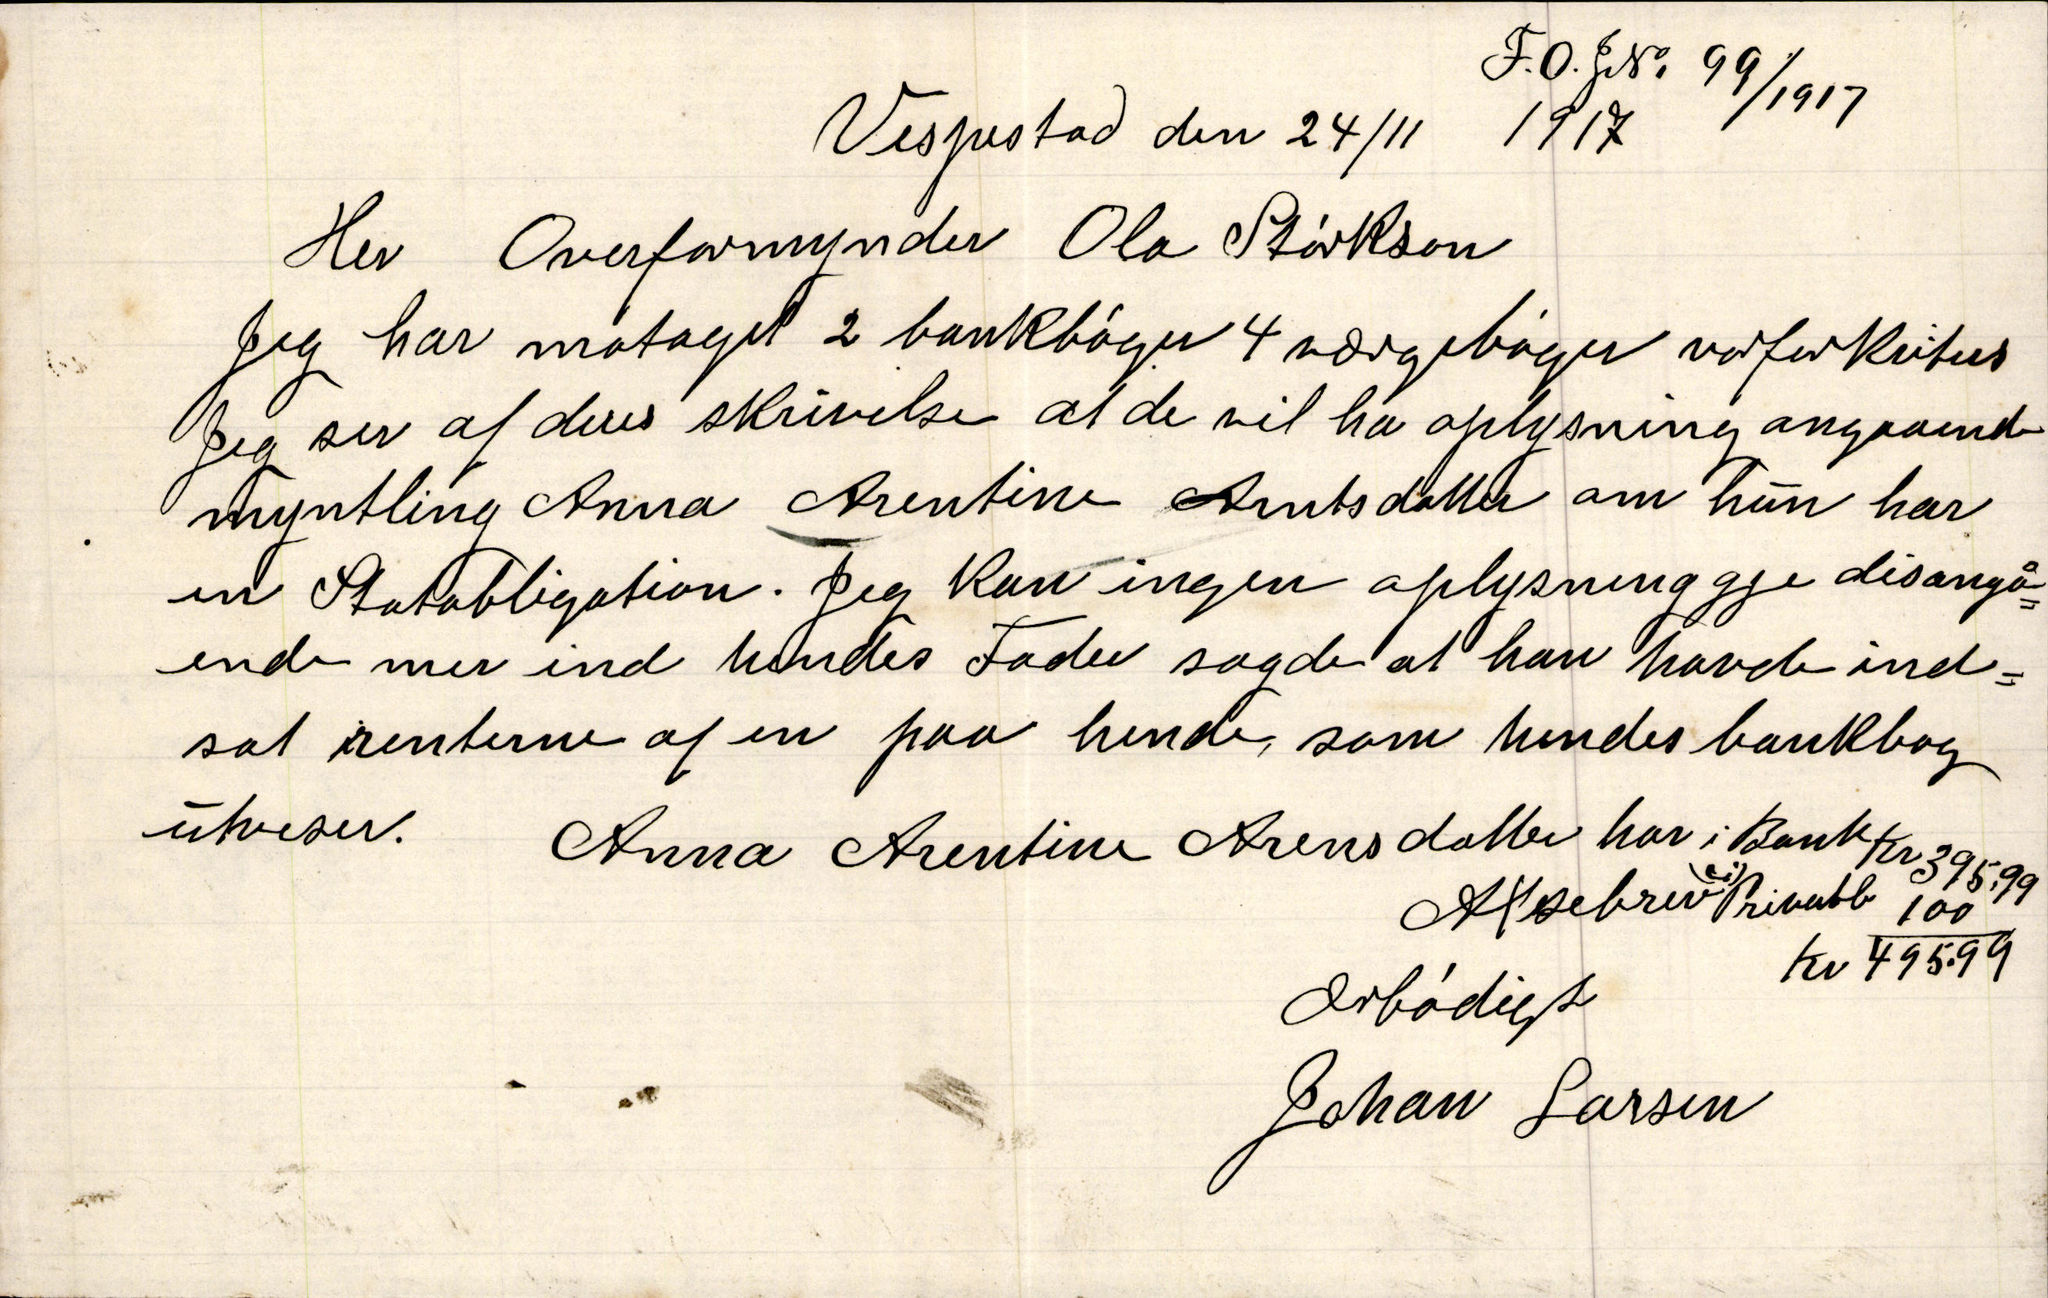 F.O.J.No. 99/1917
Vespestad den 24/11 1917
Her Overformynder Ola Störkson
Jeg har motaget 2 bankbóger 4 værgebóger vorfor kviteres
Jeg ser af deres skrivelse at de vil ha oplysning angaaende
myntling Anna Arentine Arntsdatter om hūn har
en Statobligation. Jeg kan ingen oplysning gje disangå=
ende mer end hendes Fader sagde at han havde ind=
sat renterne af en paa hende, som hendes bankbog
ūtviser. Anna Arentine Arensdatter har i Bank Kr 395,99
i Privatb 100
Kr 495.99
Ærbódigst
Johan Larsen